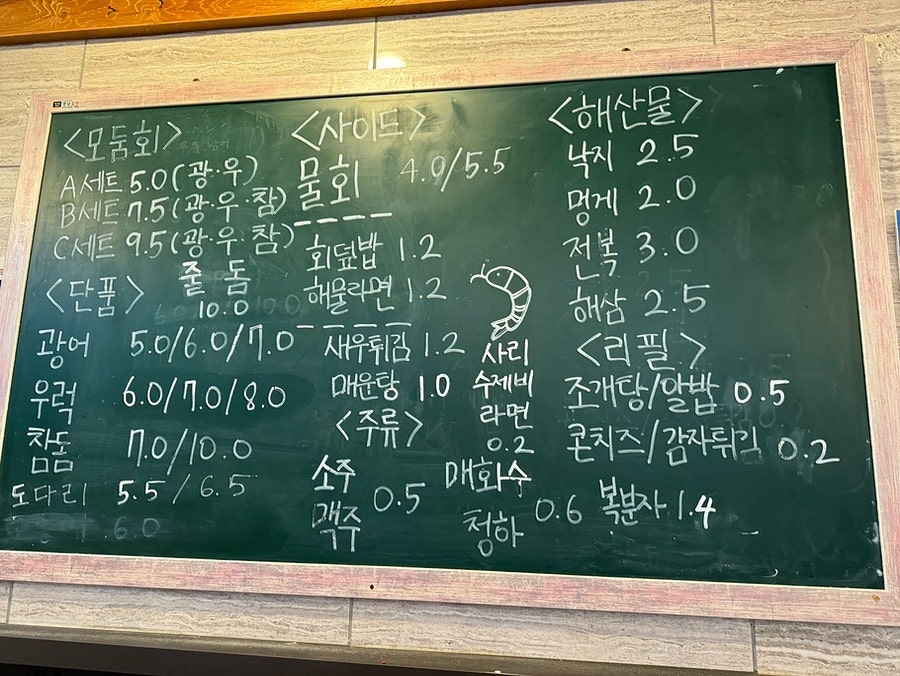 <모둠회>
A세트 5.0 (광·우)
B세트 7.5 (광·우·참)
C세트 9.5 (광·우·참)
줄돔
10.0
<단품>
광어 5.0/6.0/7.0
우럭 6.0/7.0/8.0
참돔 7.0/10.0
도다리 5.5/6.5
<사이드>
물회 4.0/5.5
회덮밥 1.2
해물라면 1.2
새우튀김 1.2
매운탕 1.0
사리
수제비
라면
0.2
<주류>
소주
맥주 0.5
매화수
청하 0.6
복분자 1.4
<해산물>
낙지 2.5
멍게 2.0
전복 3.0
해삼 2.5
<리필>
조개탕/알밥 0.5
콘치즈/감자튀김 0.2